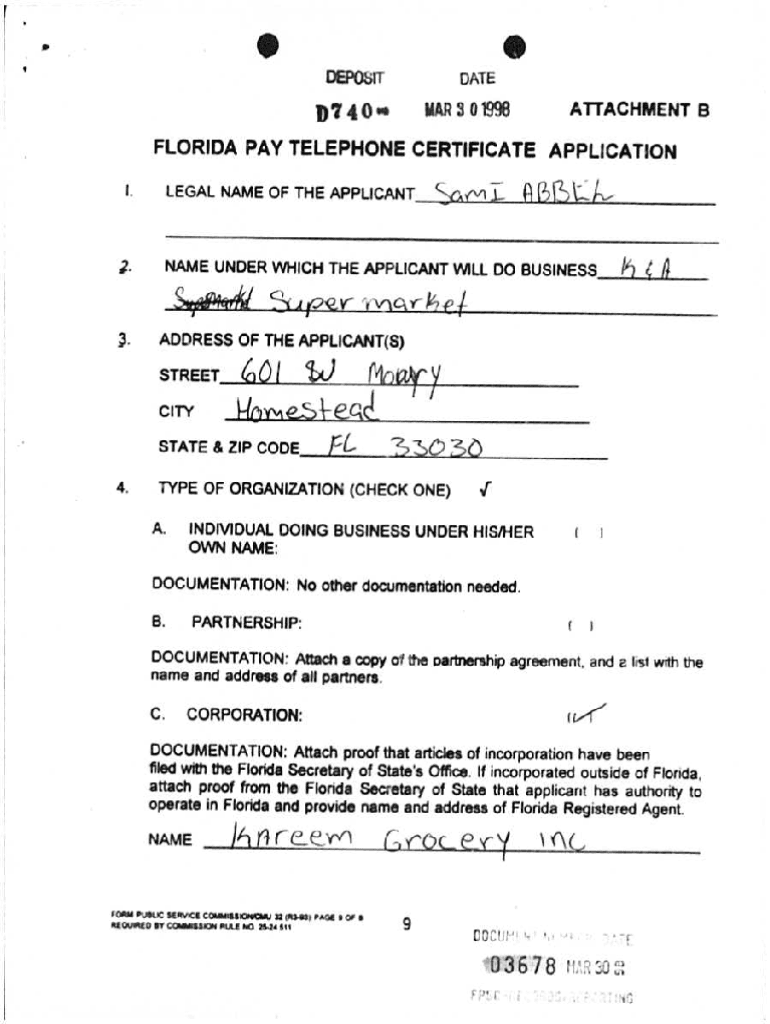 DEPOSIT DATE
D740 MAR 30 1998 ATTACHMENT B
FLORIDA PAY TELEPHONE CERTIFICATE APPLICATION
1. LEGAL NAME OF THE APPLICANT Sami ABBEL
2. NAME UNDER WHICH THE APPLICANT WILL DO BUSINESS K & A
Super market
3. ADDRESS OF THE APPLICANT(S)
STREET 601 SW
CITY Homestead
STATE & ZIP CODE FL 33030
4. TYPE OF ORGANIZATION (CHECK ONE) √
A. INDIVIDUAL DOING BUSINESS UNDER HIS/HER ( )
OWN NAME:
DOCUMENTATION: No other documentation needed.
B. PARTNERSHIP: ( )
DOCUMENTATION: Attach a copy of the partnership agreement, and a list with the
name and address of all partners.
C. CORPORATION: (✓)
DOCUMENTATION: Attach proof that articles of incorporation have been
filed with the Florida Secretary of State's Office. If incorporated outside of Florida,
attach proof from the Florida Secretary of State that applicant has authority to
operate in Florida and provide name and address of Florida Registered Agent.
NAME KAreem Grocery inc
FORM PUBLIC SERVICE COMMISSION/CMU 32 (R3-93) PAGE 9 OF 9
REQUIRED BY COMMISSION RULE NO. 25-24.511
9
DOCUMENT DATE
03678 MAR 30